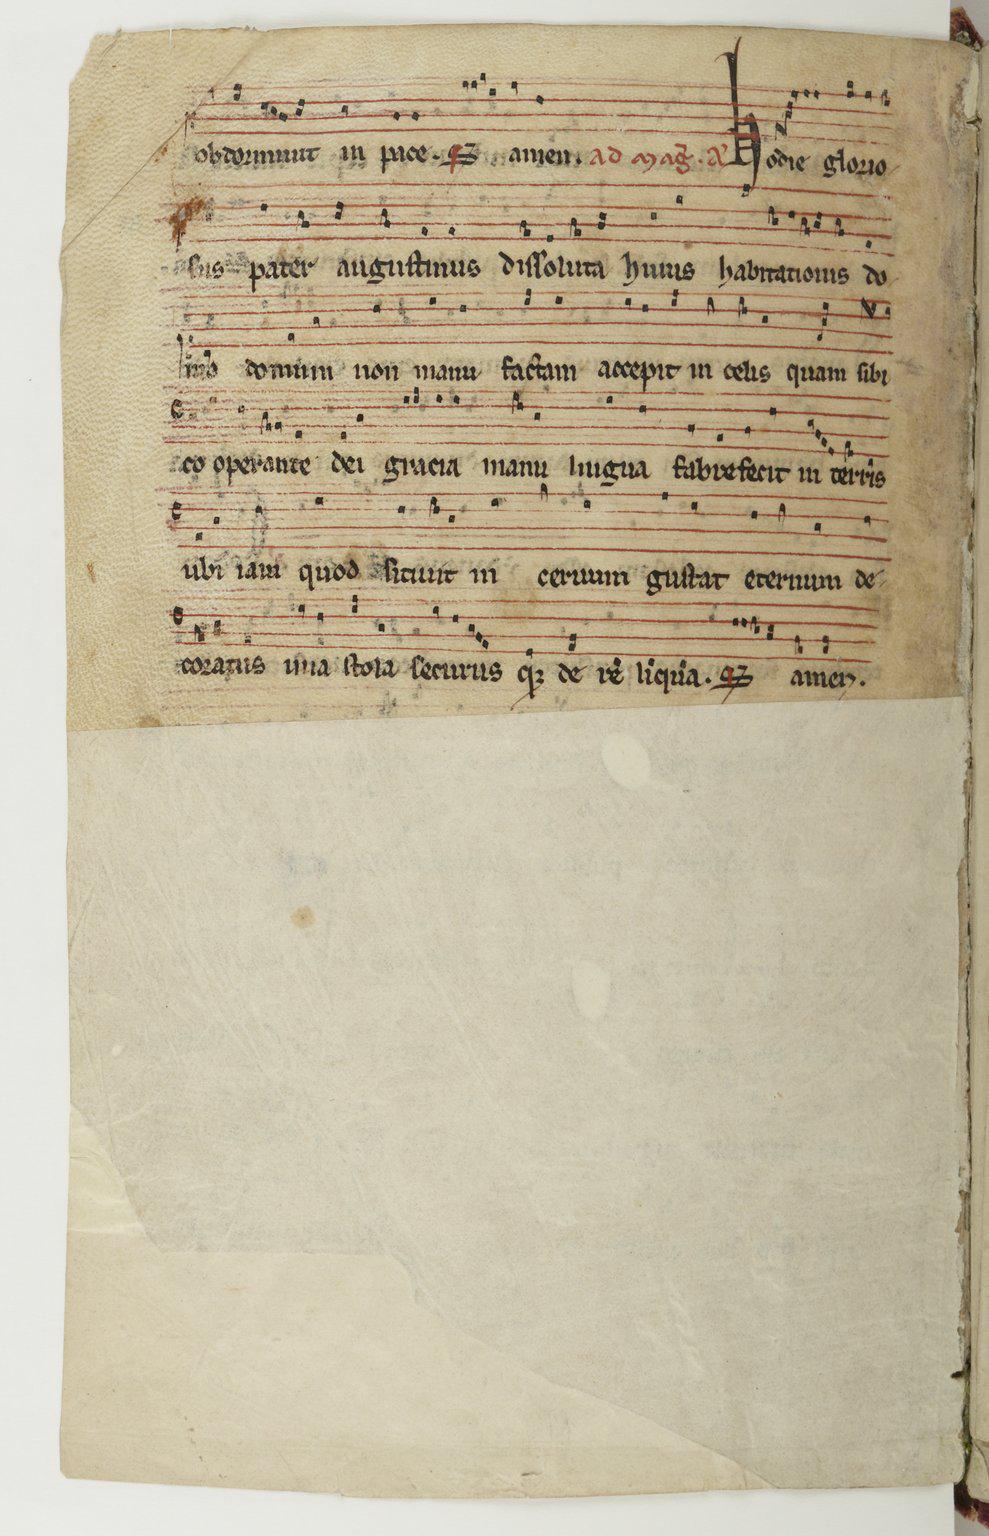 obdormiuit in pace. amen. ad mag. A Hodie glorio
sus pater augustinus dissoluta huius habitationis do
mo domum non manu factam accepit in celis quam sibi
co operante dei gracia manu lingua fabrefecit in terris
ubi iam quod sitiuit in ternum gustat eternum de
coratus una stola securus q de re liqua. amen.